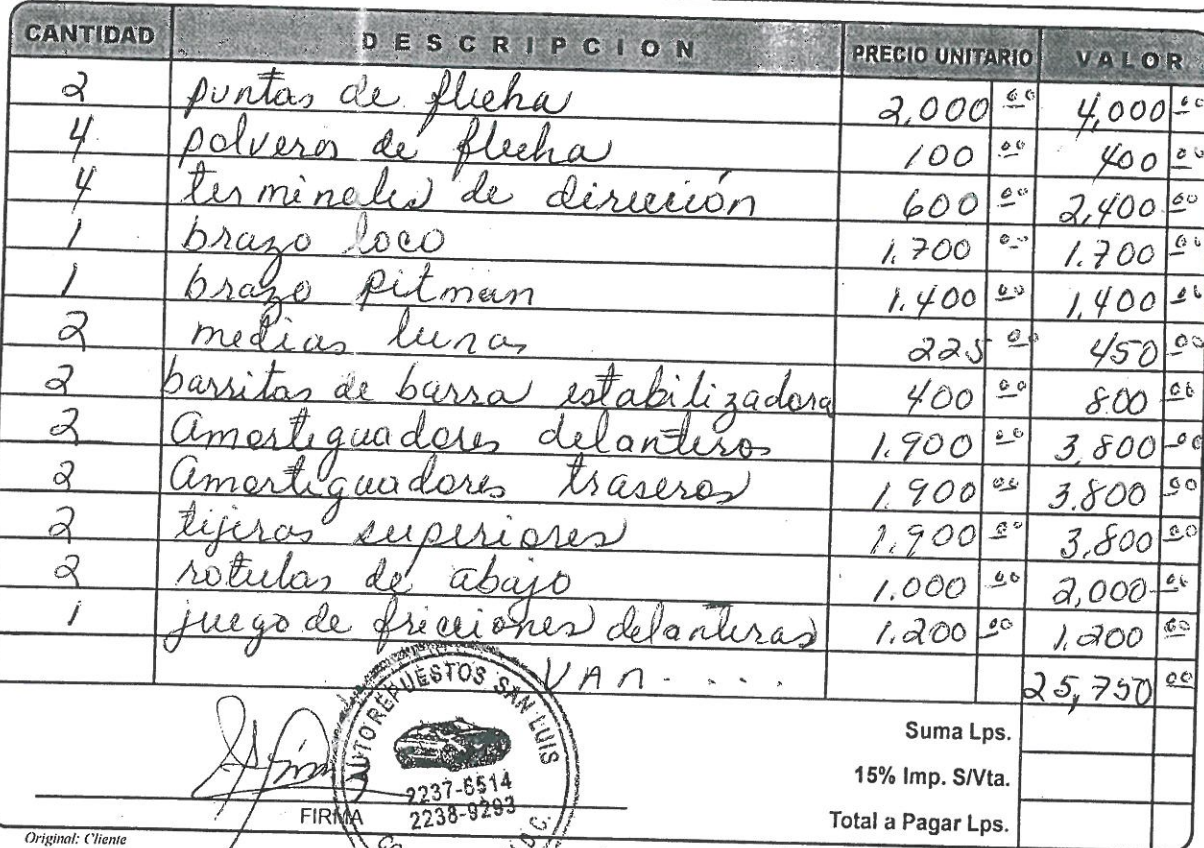 CANTIDAD DESCRIPCION PRECIO UNITARIO VALOR
2 puntas de flecha 2,000 00 4,000 00
4 polveros de flecha 100 00 400 00
4 terminales de dirección 600 00 2,400 00
1 brazo loco 1.700 00 1.700 00
1 brazo pitman 1.400 00 1,400 00
2 medias lunas 225 00 450 00
2 barritas de barra estabilizadora 400 00 800 00
2 Amortiguadores delanteros 1.900 00 3,800 00
2 Amortiguadores traseros 1.900 00 3.800 00
2 tijeras superiores 1.900 00 3,800 00
2 rotulas de abajo 1.000 00 2,000 00
1 juego de fricciones delanteras 1.200 00 1,200 00
VAN.... 25,750 00
Suma Lps.
15% Imp. S/Vta.
Total a Pagar Lps.
AUTO REPUESTOS SAN LUIS
2237-6514
2238-9293
FIRMA
Original: Cliente